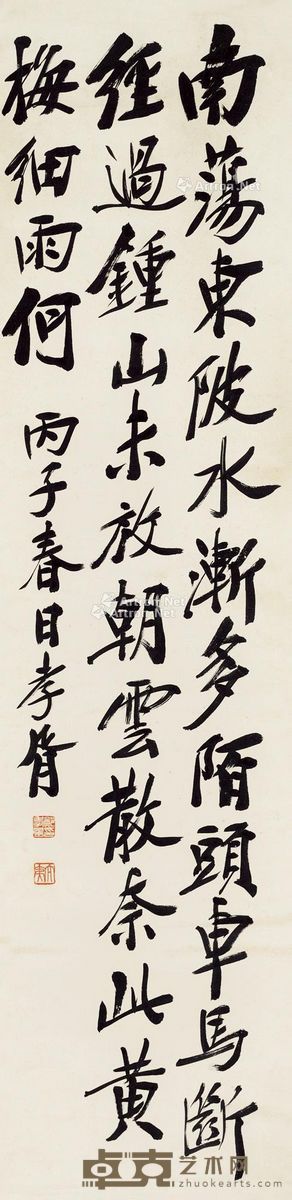 南蕩東陂水漸多陌頭車馬斷
經過鍾山未放朝雲散奈此黄
梅細雨何
丙子春日孝胥
Artron.Net
Artron.Net
Artron.Net
Artron.Net
卓克艺术网
zhuokearts.com